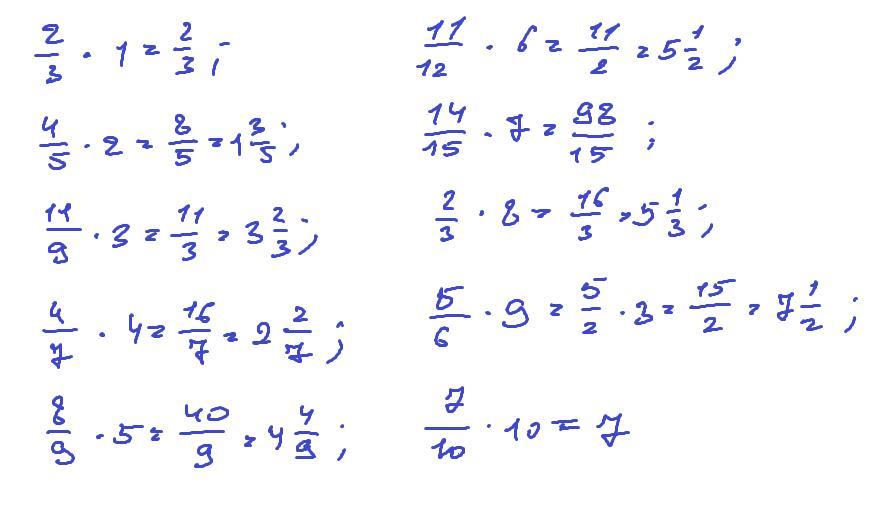 2/3 · 1 = 2/3 ;
4/5 · 2 = 8/5 = 1 3/5 ;
11/9 · 3 = 11/3 = 3 2/3 ;
4/7 · 4 = 16/7 = 2 2/7 ;
8/9 · 5 = 40/9 = 4 4/9 ;
11/12 · 6 = 11/2 = 5 1/2 ;
14/15 · 7 = 98/15 ;
2/3 · 8 = 16/3 = 5 1/3 ;
5/6 · 9 = 5/2 · 3 = 15/2 = 7 1/2 ;
7/10 · 10 = 7